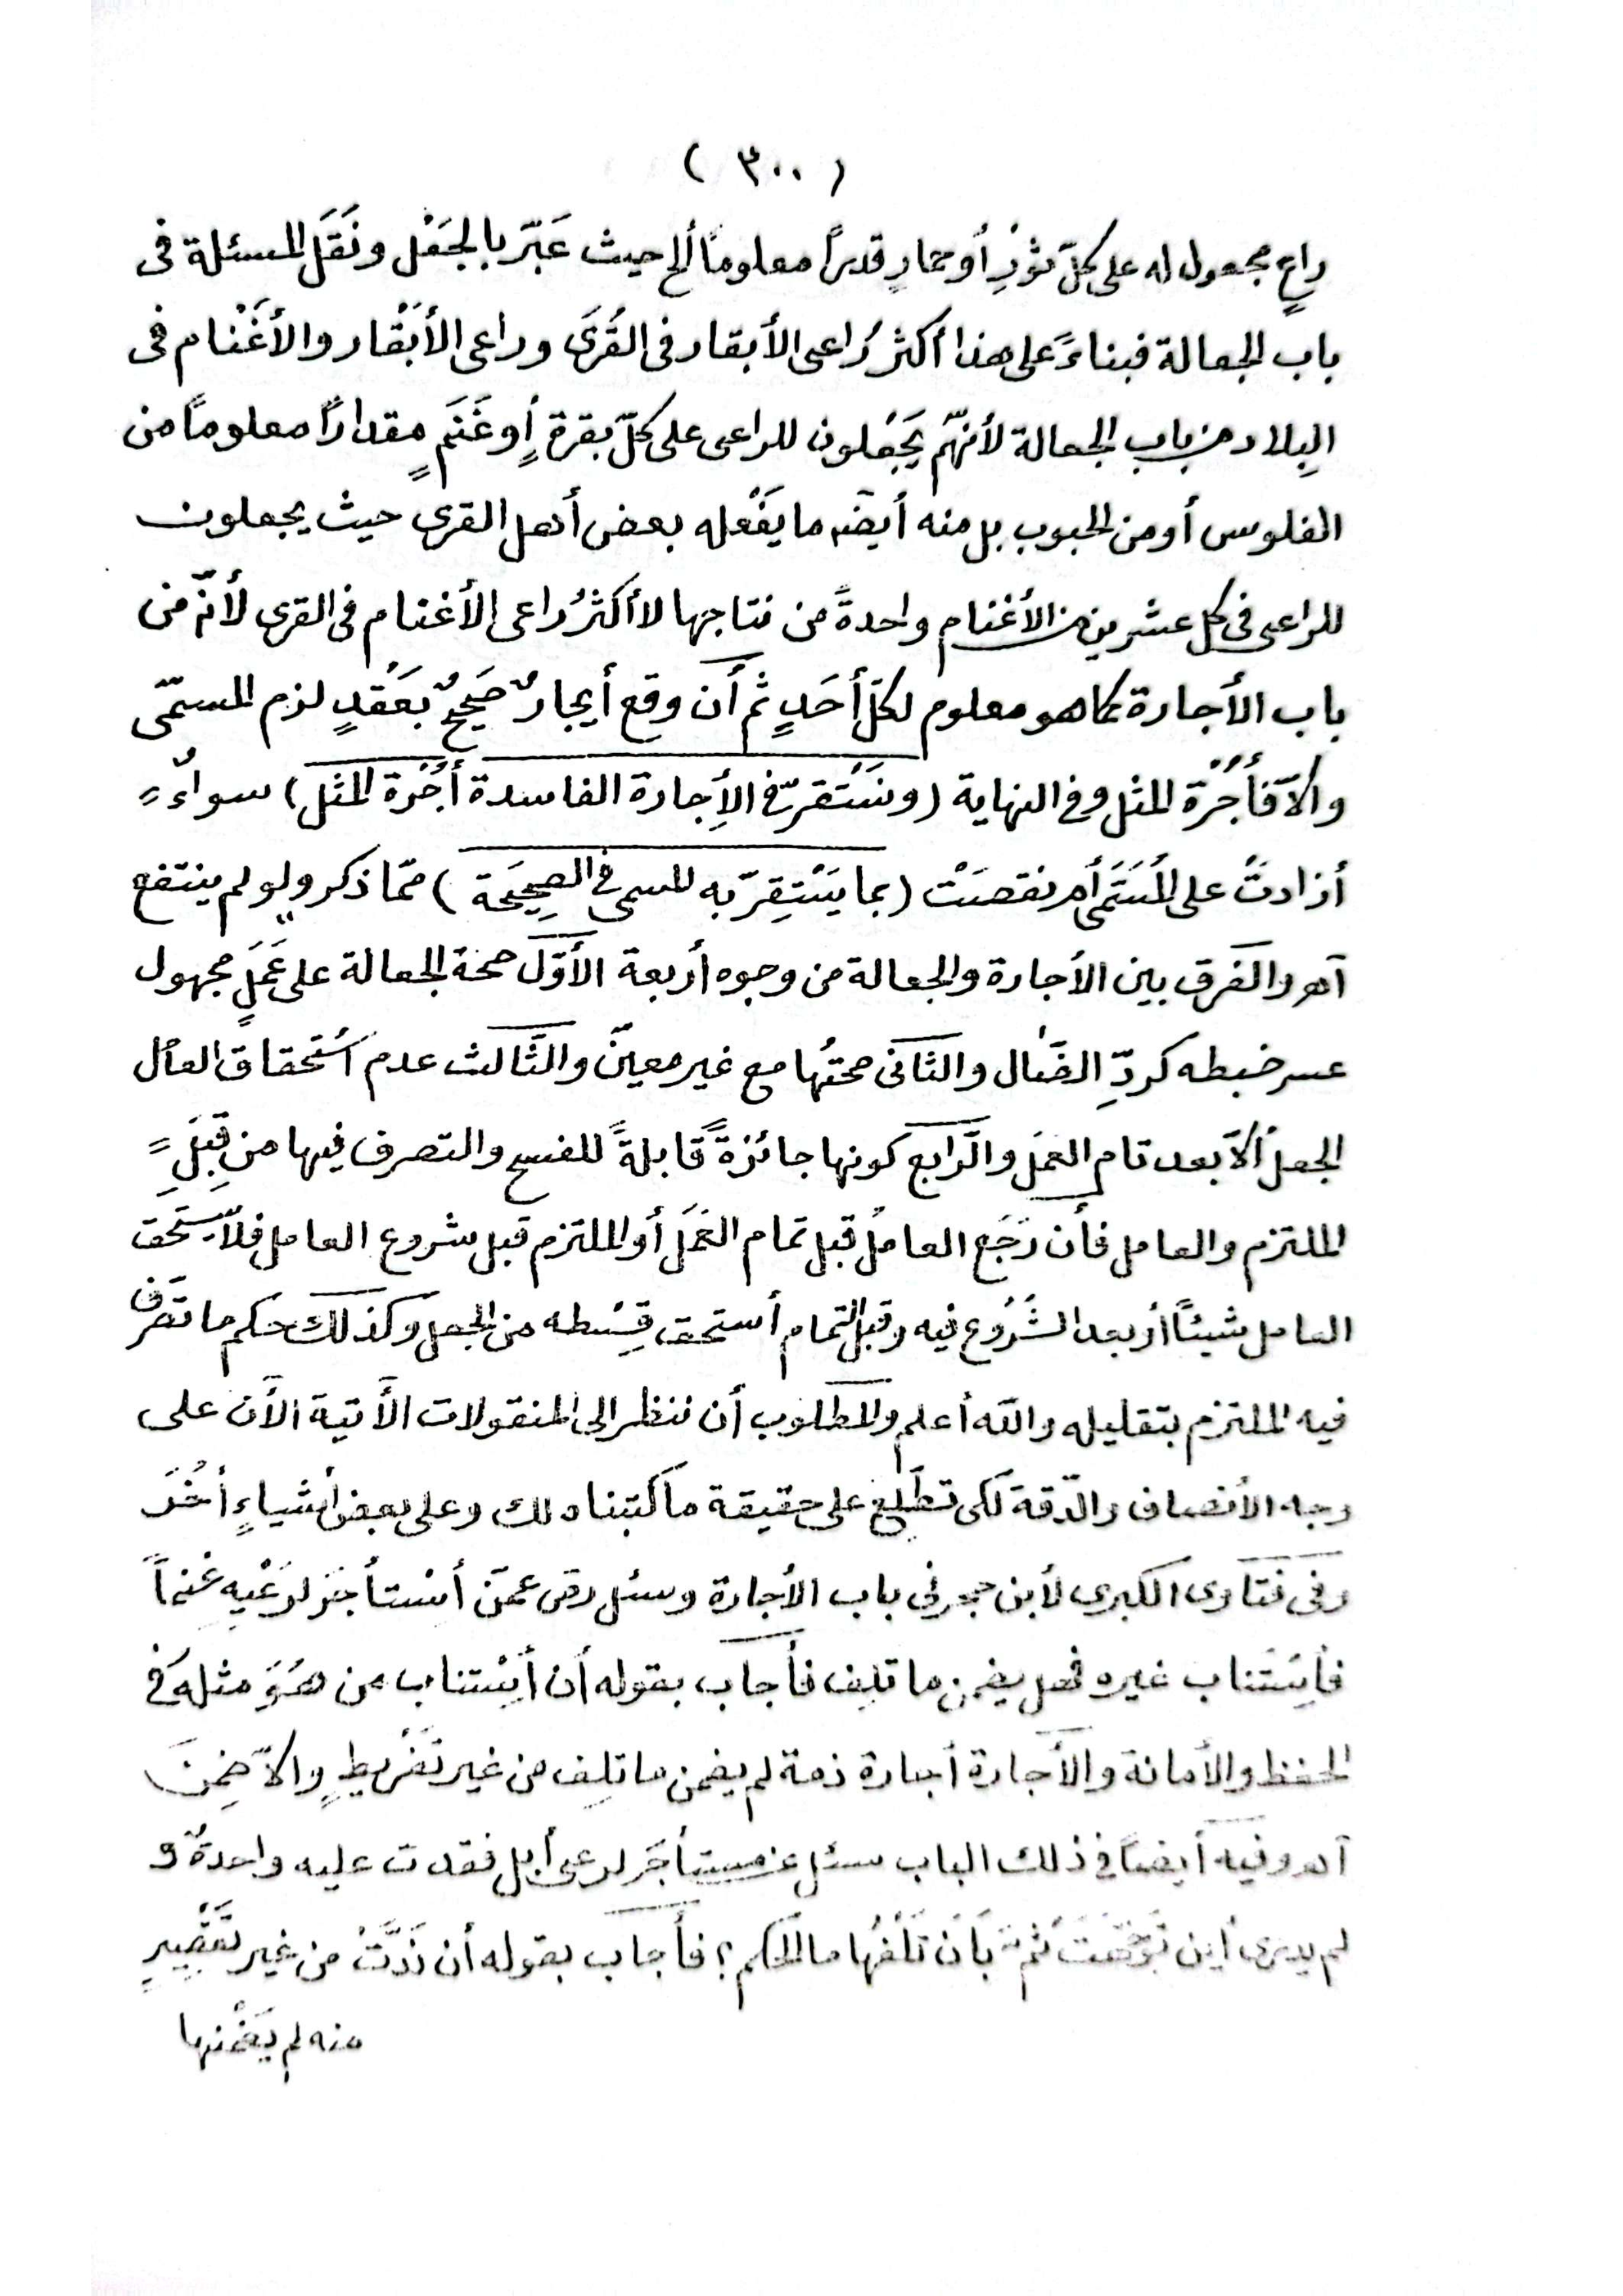 ( ٣٠٠ )
راعٍ مجعول له على كلّ ثورٍ أو حمارٍ قدراً معلوماً ألخ حيث عَبّر بالجَعْل ونَقَل المسئلة فى
باب الجعالة فبناءً على هذا أكثر رُاعى الأبقار فى القُرىَ وراعى الأبَقْار والأغَنْام فى
البِلاد من باب الجعالة لأنهّم يَجْعَلون للراعى على كلّ بقرة أو غَنَمٍ مقداراً معلوماً من
الفلوس أو من الحبوب بل منه أيضاً ما يَفْعله بعض أهل القرى حيث يجعلون
للراعى فى كل عشرين من الأغنام واحدةً من نتاجها لا أكثرُ راعى الأغنام فى القرى لأنّه من
باب الأجارة كما هو معلوم لكلّ أحَدٍ ثم أن وقع أيجارٌ صَحيحٌ بعَقْدٍ لزم المسمّى
والاّ فأجُرْة المثل وفى النهاية (وتَسْتقرّ فى الإجارة الفاسدة أُجْرة المثل) سواءٌ
أزادتْ على المُسَمَّى أم نقصَتْ (بما يَسْتِقرّ به المسمى فى الصحِيحَة) ممّا ذكر ولو لم ينتفع
آهـ والفَرق بين الأجارة والجعالة من وجوه أربعة الأوّل صحة الجعالة على عَمَلٍ مجهول
عسر ضبطه كردّ الضّال والثانى صحتُها مع غير معينّ والثَّالث عدم اَسْتحقاق العامل
الجعلَ ألاّ بعد تام العَمَل والرّابع كونها جائزةً قابلةً للفسخ والتصرف فيها من قِبَلِ
الملتزم والعامل فأن رَجَع العاملُ قبل تمام العَمَل أو الملتزم قبل شروع العامل فلا يَسَتَحق
العامل شيئاً أو بعد الشُرُوع فيه وقبل التمام أستحق قِسْطه من الجعل وكذلك حكم ما تصَرّف
فيه الملتزم بتقليله والله أعلم والمطلوب أن ننظر الى المنقولات الأتية الأن على
وجه الأنصاف والدّقة لكى تطّلع على حقيقة ما كتبناه لك وعلى بعض أشياءٍ أُخَرَ
وفى فتاوى الكبرى لأبن حجر فى باب الأجارة وسئل رض عمّن أسْتأجَر لرَعْيهِ غنماً
فأستَناب غيره فهل يضمن ما تلِف فأجاب بقوله أن أسْتناب من هُوَ مثله فى
الحفظ والأمانة والأجارة أجارة ذمة لم يضمن ما تلِف من غير تَفْريطٍ والاّ ضِمنَ
آهـ وفيه أيضاً فى ذلك الباب سئل عن مستأجَر لرعى أبل فقدت عليه واحدةٌ و
لم يدرى أين توجّهت ثم بَان تَلَفُها ما الحكم؟ فأجاب بقوله أن نَدَّتْ من غير تقْصِيرٍ
منه لم يَضْمَنها